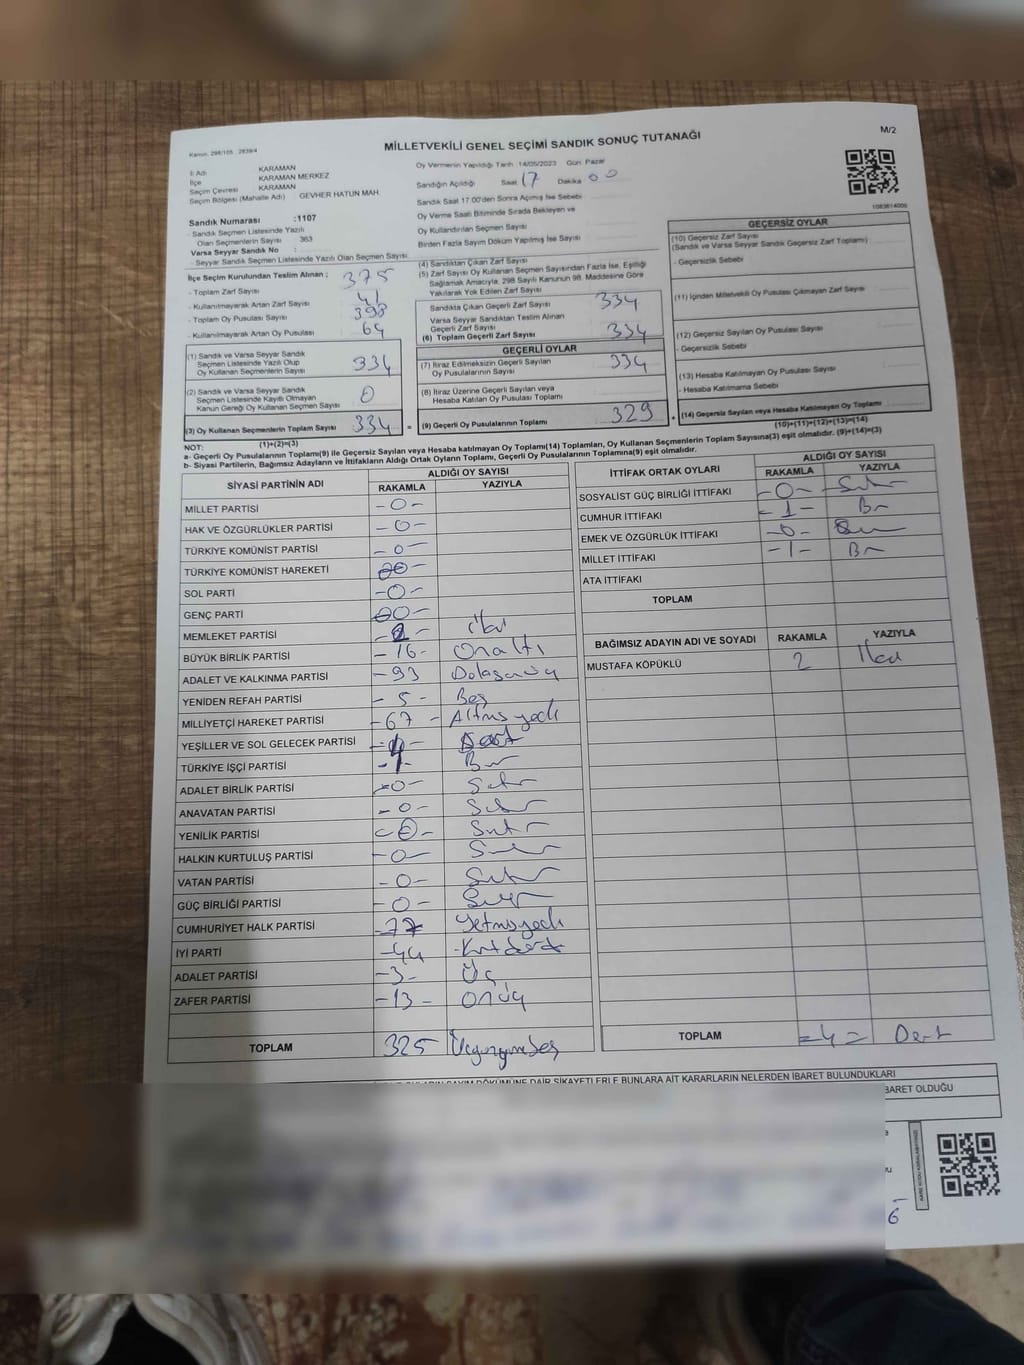 Kanun: 298/105 2839/4
MİLLETVEKİLİ GENEL SEÇİMİ SANDIK SONUÇ TUTANAĞI
M/2
İl Adı KARAMAN
İlçe KARAMAN MERKEZ
Seçim Çevresi KARAMAN
Seçim Bölgesi (Mahalle Adı) GEVHER HATUN MAH.
Sandık Numarası :1107
- Sandık Seçmen Listesinde Yazılı
Olan Seçmenlerin Sayısı 363
Varsa Seyyar Sandık No :
- Seyyar Sandık Seçmen Listesinde Yazılı Olan Seçmen Sayısı
Oy Vermenin Yapıldığı Tarih 14/05/2023 Gün Pazar
Sandığın Açıldığı Saat 17 Dakika 00
Sandık Saat 17:00'den Sonra Açılmış İse Sebebi
Oy Verme Saati Bitiminde Sırada Bekleyen ve
Oy Kullandırılan Seçmen Sayısı
Birden Fazla Sayım Döküm Yapılmış İse Sayısı
1083614005
İlçe Seçim Kurulundan Teslim Alınan ;
- Toplam Zarf Sayısı 375
- Kullanılmayarak Artan Zarf Sayısı 41
- Toplam Oy Pusulası Sayısı 398
- Kullanılmayarak Artan Oy Pusulası 64
(1) Sandık ve Varsa Seyyar Sandık
Seçmen Listesinde Yazılı Olup
Oy Kullanan Seçmenlerin Sayısı 334
(2) Sandık ve Varsa Seyyar Sandık
Seçmen Listesinde Kayıtlı Olmayan
Kanun Gereği Oy Kullanan Seçmen Sayısı 0
(3) Oy Kullanan Seçmenlerin Toplam Sayısı 334
(1)+(2)=(3)
(4) Sandıktan Çıkan Zarf Sayısı
(5) Zarf Sayısı Oy Kullanan Seçmen Sayısından Fazla İse, Eşitliği
Sağlamak Amacıyla, 298 Sayılı Kanunun 98. Maddesine Göre
Yakılarak Yok Edilen Zarf Sayısı
Sandıkta Çıkan Geçerli Zarf Sayısı 334
Varsa Seyyar Sandıktan Teslim Alınan
Geçerli Zarf Sayısı
(6) Toplam Geçerli Zarf Sayısı 334
GEÇERLİ OYLAR
(7) İtiraz Edilmeksizin Geçerli Sayılan
Oy Pusulalarının Sayısı 334
(8) İtiraz Üzerine Geçerli Sayılan veya
Hesaba Katılan Oy Pusulası Toplamı
= (9) Geçerli Oy Pusulalarının Toplamı 329 +
GEÇERSİZ OYLAR
(10) Geçersiz Zarf Sayısı
(Sandık ve Varsa Seyyar Sandık Geçersiz Zarf Toplamı)
- Geçersizlik Sebebi
(11) İçinden Milletvekili Oy Pusulası Çıkmayan Zarf Sayısı
(12) Geçersiz Sayılan Oy Pusulası Sayısı
- Geçersizlik Sebebi
(13) Hesaba Katılmayan Oy Pusulası Sayısı
- Hesaba Katılmama Sebebi
(14) Geçersiz Sayılan veya Hesaba Katılmayan Oy Toplamı
(10)+(11)+(12)+(13)=(14)
NOT:
a- Geçerli Oy Pusulalarının Toplamı(9) ile Geçersiz Sayılan veya Hesaba katılmayan Oy Toplamı(14) Toplamları, Oy Kullanan Seçmenlerin Toplam Sayısına(3) eşit olmalıdır. (9)+(14)=(3)
b- Siyasi Partilerin, Bağımsız Adayların ve İttifakların Aldığı Ortak Oyların Toplamı, Geçerli Oy Pusulalarının Toplamına(9) eşit olmalıdır.
SİYASİ PARTİNİN ADI ALDIĞI OY SAYISI
RAKAMLA YAZIYLA
MİLLET PARTİSİ -0-
HAK VE ÖZGÜRLÜKLER PARTİSİ -0-
TÜRKİYE KOMÜNİST PARTİSİ -0-
TÜRKİYE KOMÜNİST HAREKETİ 0-
SOL PARTİ -0-
GENÇ PARTİ 0-
MEMLEKET PARTİSİ -2- İki
BÜYÜK BİRLİK PARTİSİ -16- Onaltı
ADALET VE KALKINMA PARTİSİ -93
YENİDEN REFAH PARTİSİ -5- Beş
MİLLİYETÇİ HAREKET PARTİSİ -67- Altmışyedi
YEŞİLLER VE SOL GELECEK PARTİSİ -4- Dört
TÜRKİYE İŞÇİ PARTİSİ -1- Bir
ADALET BİRLİK PARTİSİ -0- Sıfır
ANAVATAN PARTİSİ -0- Sıfır
YENİLİK PARTİSİ -0- Sıfır
HALKIN KURTULUŞ PARTİSİ -0- Sıfır
VATAN PARTİSİ -0- Sıfır
GÜÇ BİRLİĞİ PARTİSİ -0- Sıfır
CUMHURİYET HALK PARTİSİ -77 Yetmişyedi
İYİ PARTİ -44 Kırkdört
ADALET PARTİSİ -3- Üç
ZAFER PARTİSİ -13- Onüç
TOPLAM 325 Üçyüzyirmibeş
İTTİFAK ORTAK OYLARI ALDIĞI OY SAYISI
RAKAMLA YAZIYLA
SOSYALİST GÜÇ BİRLİĞİ İTTİFAKI -0- Sıfır
CUMHUR İTTİFAKI -1- Bir
EMEK VE ÖZGÜRLÜK İTTİFAKI -0- Sıfır
MİLLET İTTİFAKI -1- Bir
ATA İTTİFAKI
TOPLAM
BAĞIMSIZ ADAYIN ADI VE SOYADI RAKAMLA YAZIYLA
MUSTAFA KÖPÜKLÜ 2 İki
TOPLAM =4= Dört
SAYIM DÖKÜMÜNE DAİR ŞİKAYETLERLE BUNLARA AİT KARARLARIN NELERDEN İBARET BULUNDUKLARI
BARET OLDUĞU
6